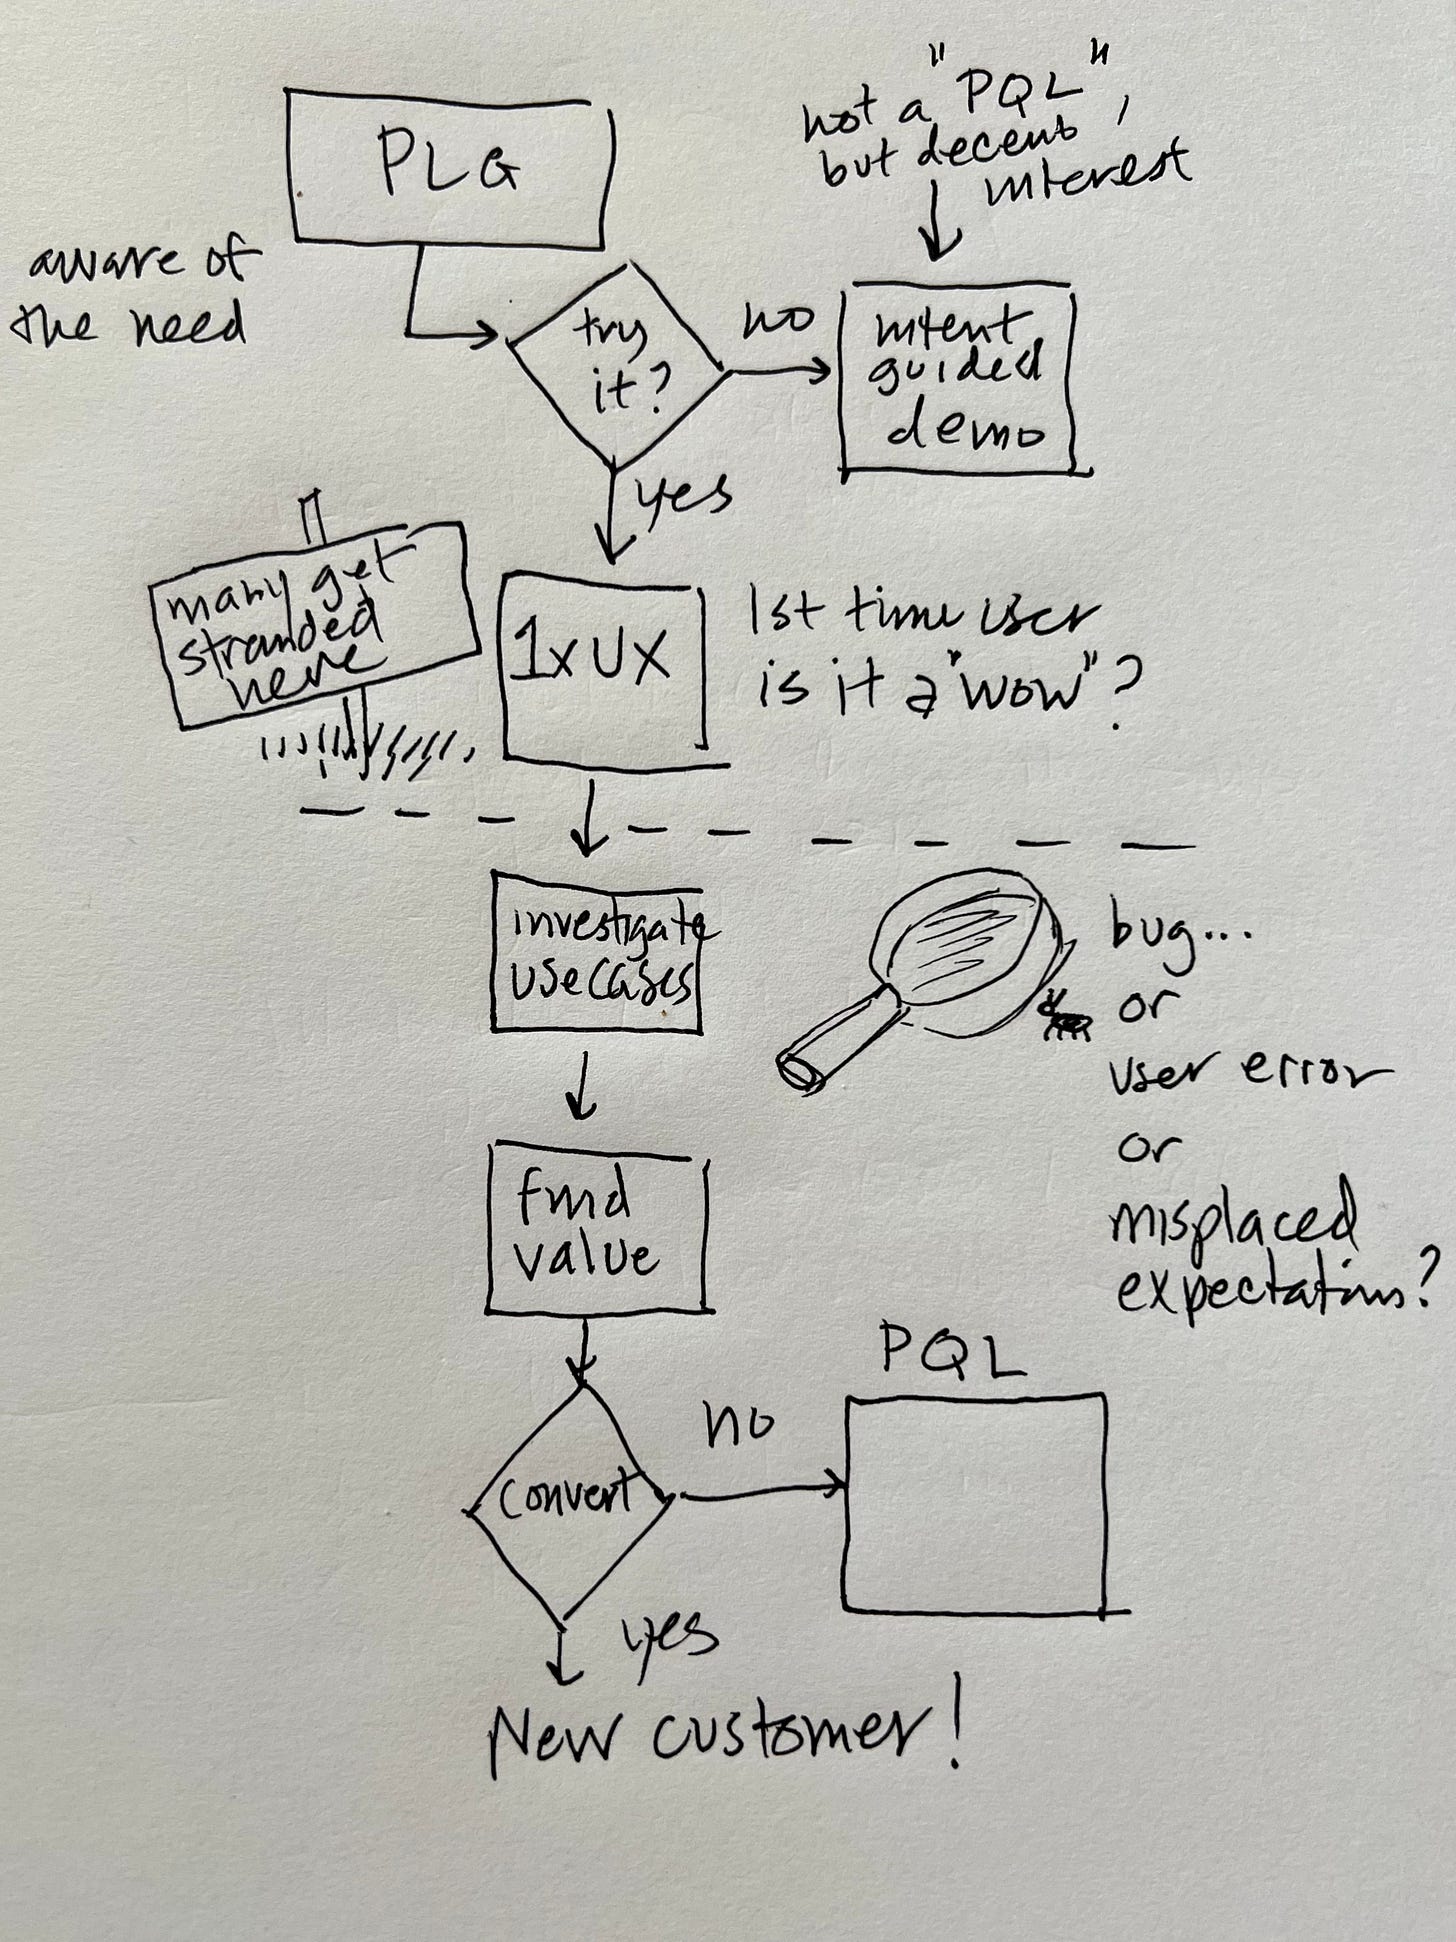 PLG
not a "PQL",
but decent
interest
aware of
the need
try
it?
no
intent
guided
demo
yes
many get
stranded
here
1x UX
1st time user
is it a "wow"?
investigate
use cases
bug...
or
user error
or
misplaced
expectations?
find
value
PQL
no
convert
yes
New customer!